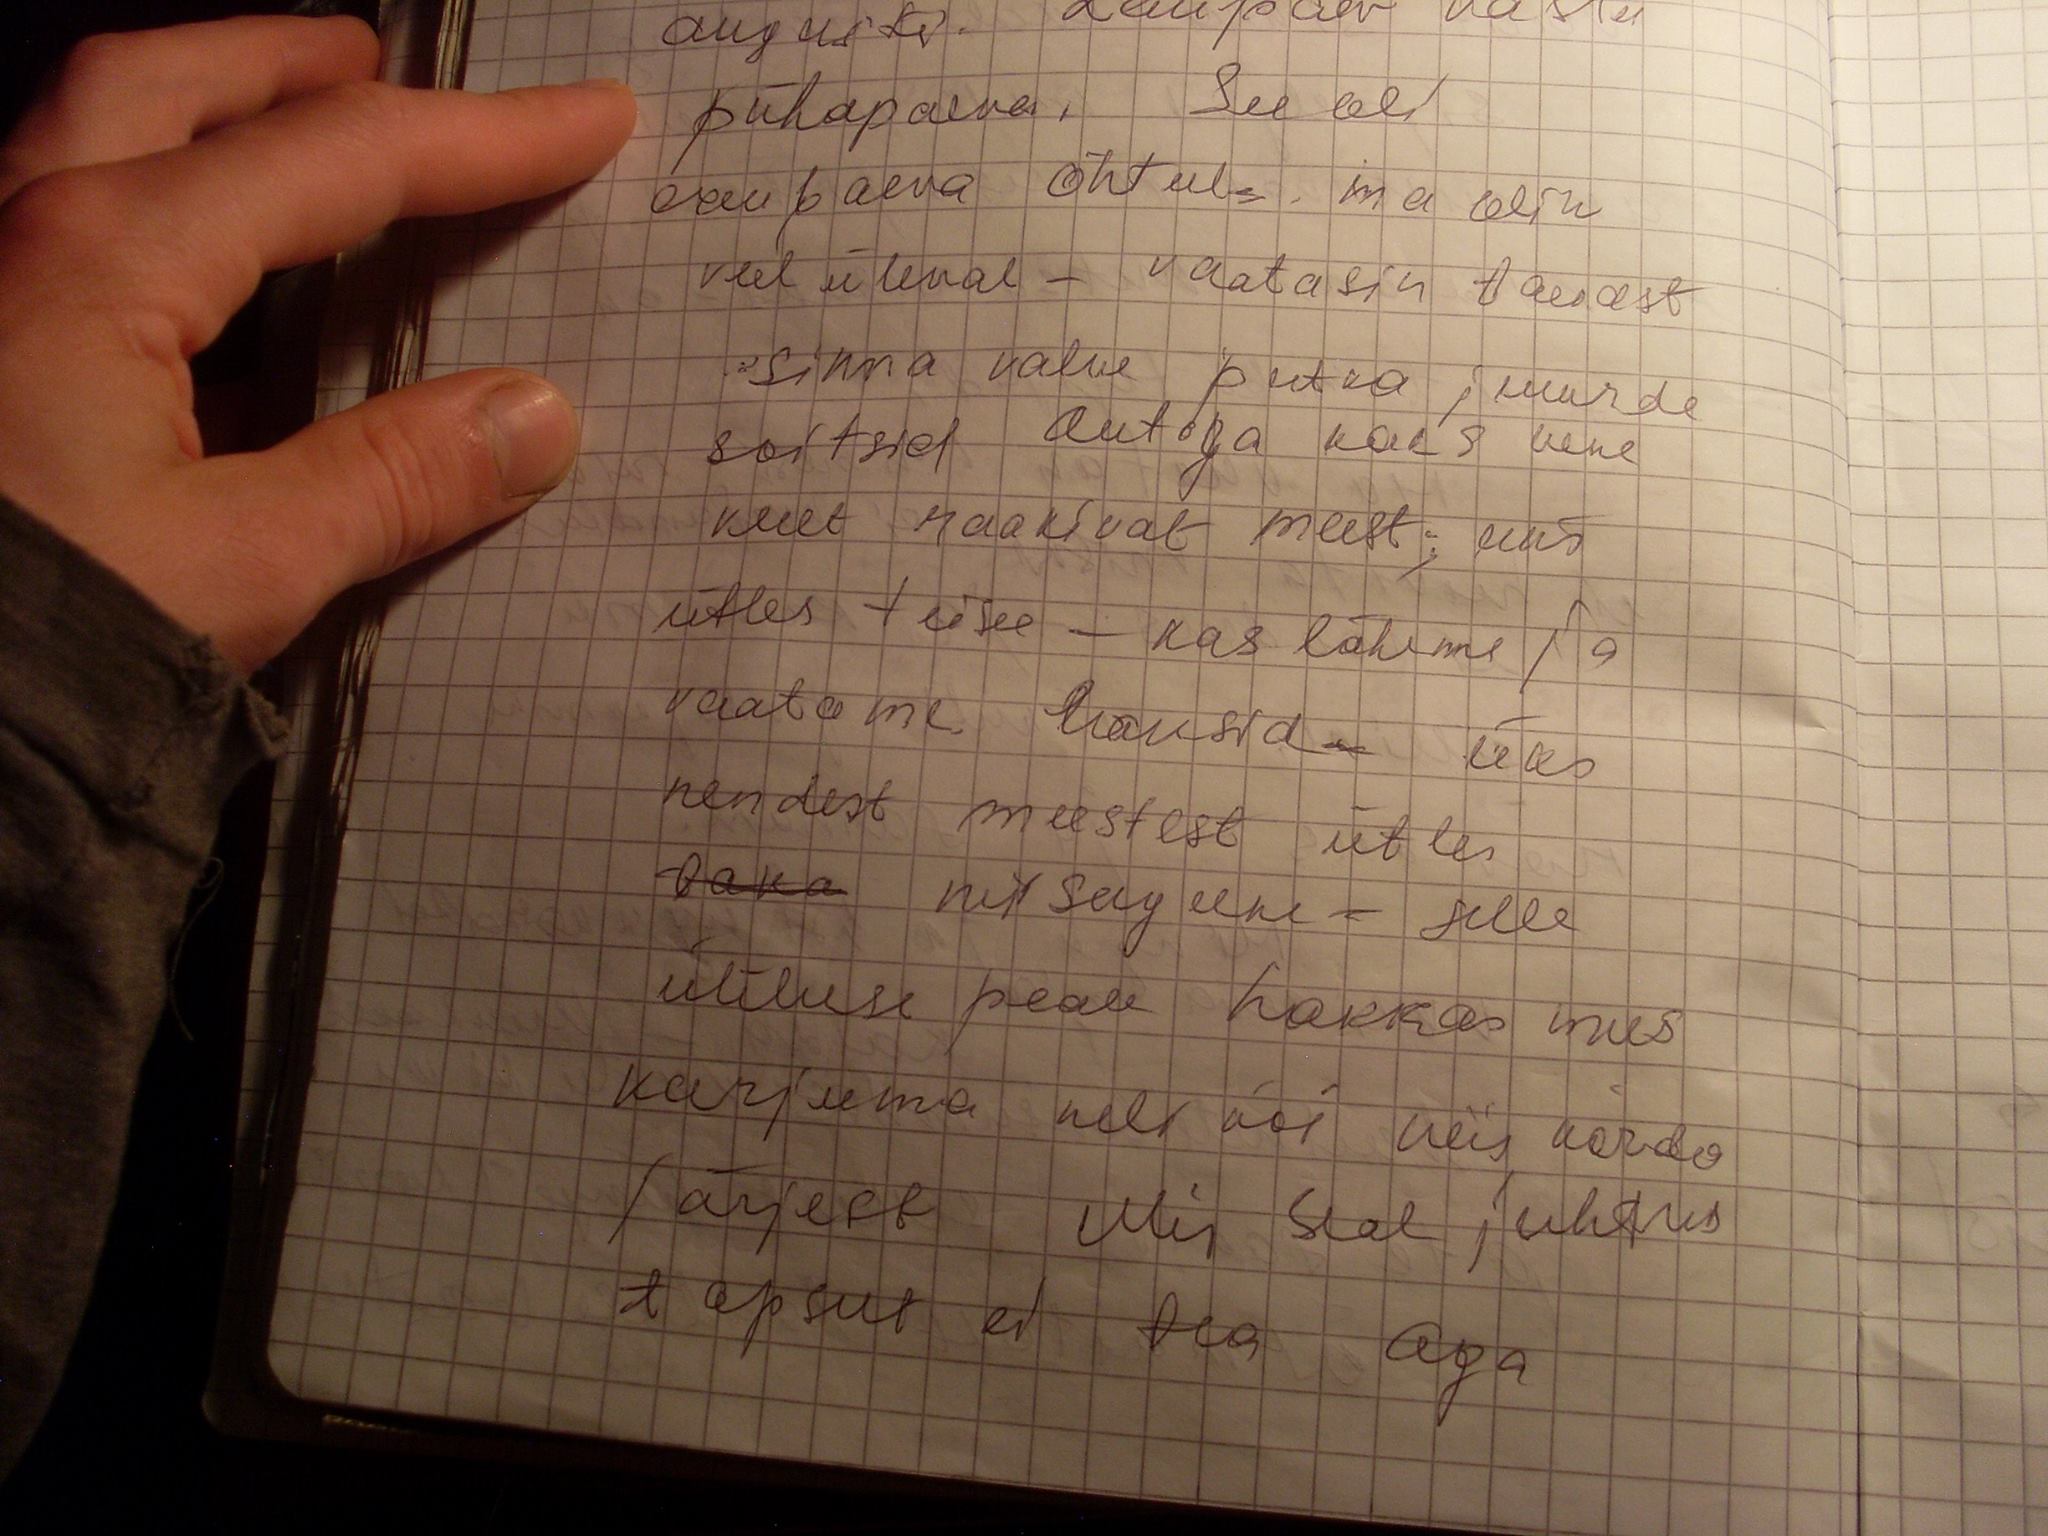 augusti. Laupäev vastu
pühapaeva. See oli
laupaeva õhtul. ma olin
veel üleval - vaatasin taevast
sinna valve putka juurde
soitsid autoga kaks vene
keelt raakivat meest; üks
ütles teise - kas lähme ja
vaatame haksid - üks
nendest meestest ütles
taka - selle
ütluse peale hakkas mees
karjuma neli või viis korda
järjest Mis seal juhtus
tapsut ei tea aga